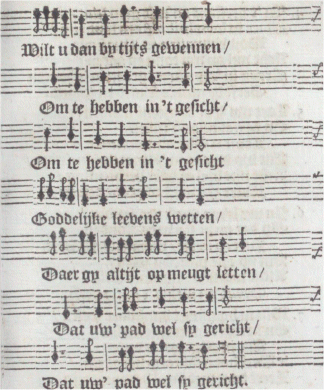 Wilt u dan by tijts gewennen /
Om te hebben in 't gesicht /
Om te hebben in 't gesicht
Goddelijke leevens wetten /
Daer gy altijt op meugt letten /
Dat uw' pad wel sy gericht /
Dat uw' pad wel sy gericht.